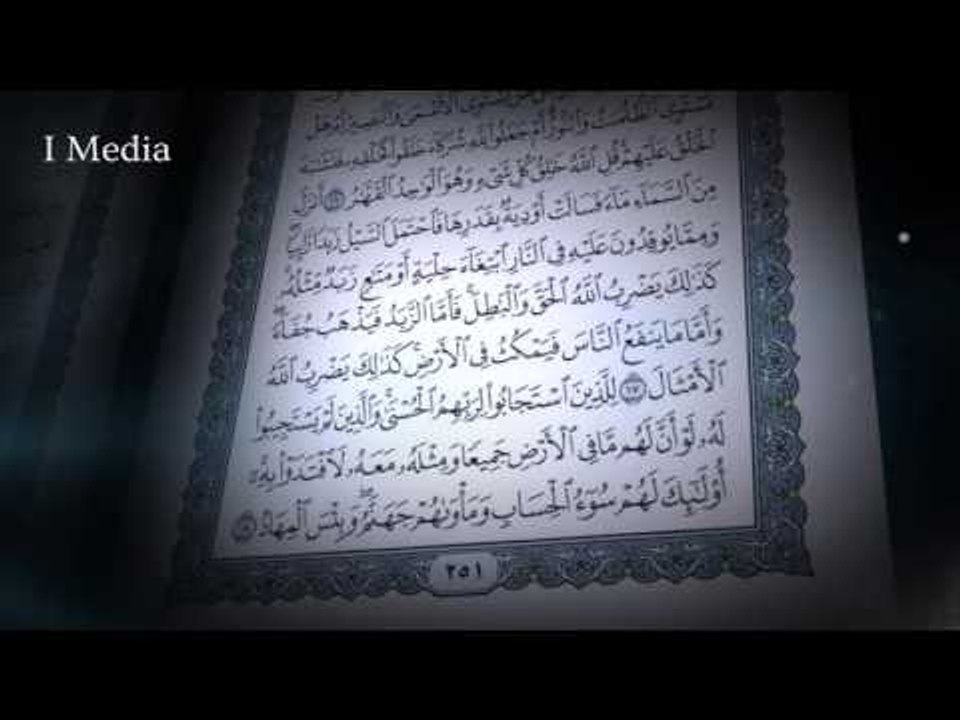 I Media
تَسْتَوِى ٱلظُّلُمَٰتُ وَٱلنُّورُ أَمْ جَعَلُوا۟ لِلَّهِ شُرَكَآءَ خَلَقُوا۟ كَخَلْقِهِۦ فَتَشَٰبَهَ
ٱلْخَلْقُ عَلَيْهِمْ قُلِ ٱللَّهُ خَٰلِقُ كُلِّ شَىْءٍ وَهُوَ ٱلْوَٰحِدُ ٱلْقَهَّٰرُ ١٦ أَنزَلَ
مِنَ ٱلسَّمَآءِ مَآءً فَسَالَتْ أَوْدِيَةٌۢ بِقَدَرِهَا فَٱحْتَمَلَ ٱلسَّيْلُ زَبَدًا رَّابِيًا
وَمِمَّا يُوقِدُونَ عَلَيْهِ فِى ٱلنَّارِ ٱبْتِغَآءَ حِلْيَةٍ أَوْ مَتَٰعٍ زَبَدٌ مِّثْلُهُۥ
كَذَٰلِكَ يَضْرِبُ ٱللَّهُ ٱلْحَقَّ وَٱلْبَٰطِلَ ۚ فَأَمَّا ٱلزَّبَدُ فَيَذْهَبُ جُفَآءً ۖ
وَأَمَّا مَا يَنفَعُ ٱلنَّاسَ فَيَمْكُثُ فِى ٱلْأَرْضِ ۚ كَذَٰلِكَ يَضْرِبُ ٱللَّهُ
ٱلْأَمْثَالَ ١٧ لِلَّذِينَ ٱسْتَجَابُوا۟ لِرَبِّهِمُ ٱلْحُسْنَىٰ ۚ وَٱلَّذِينَ لَمْ يَسْتَجِيبُوا۟
لَهُۥ لَوْ أَنَّ لَهُم مَّا فِى ٱلْأَرْضِ جَمِيعًا وَمِثْلَهُۥ مَعَهُۥ لَٱفْتَدَوْا۟ بِهِۦٓ ۚ
أُو۟لَٰٓئِكَ لَهُمْ سُوٓءُ ٱلْحِسَابِ وَمَأْوَىٰهُمْ جَهَنَّمُ ۖ وَبِئْسَ ٱلْمِهَادُ ١٨
٢٥١